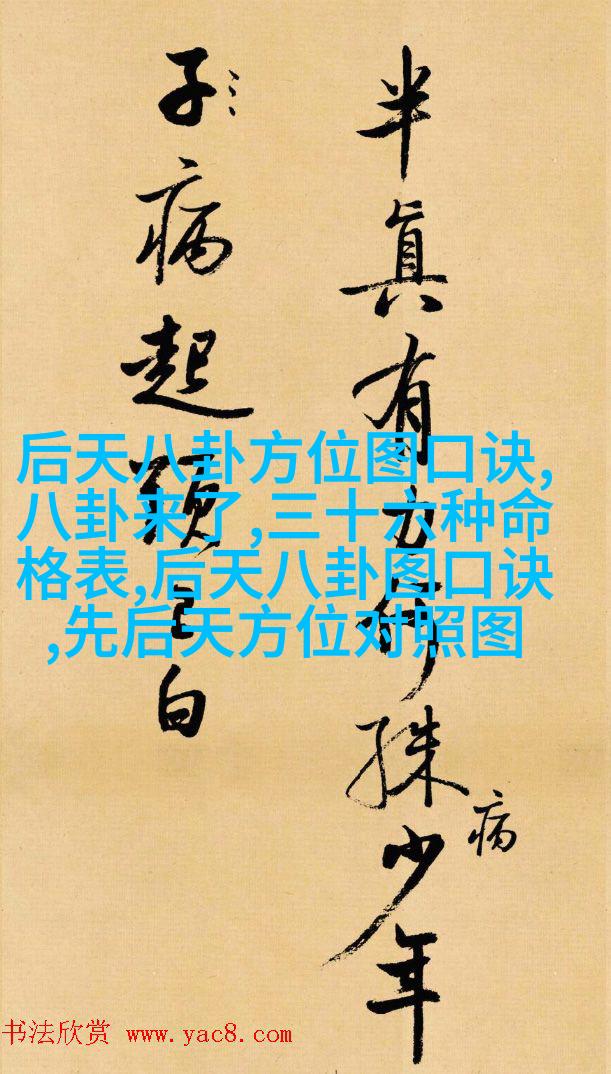 半眞有方何殊少年
病
子病起白
后天八卦方位图口诀,
八卦来了,三十六种命
格表,后天八卦图口诀
,先后天方位对照图
书法欣赏 www.yac8.com